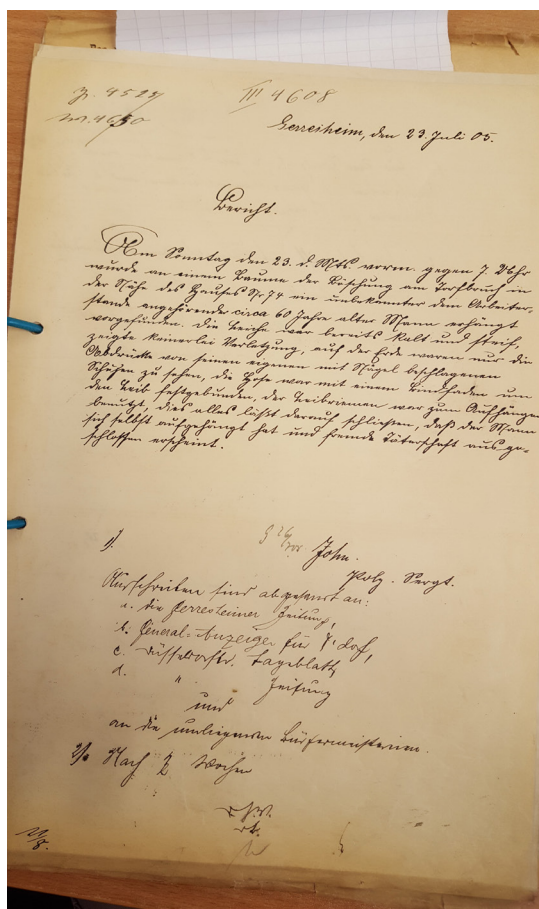 III 4608
Gerresheim, den 23. Juli 05.
Bericht.
Am Sonntag den 23. d. Mts. vorm. gegen 7 Uhr
wurde an einem Baume der Böschung am Torfbruch in
der Nähe des Hauses Nr. 74 ein unbekannter dem Arbeiter-
stande angehörender circa 60 Jahre alter Mann erhängt
vorgefunden. Die Leiche war bereits kalt und steif,
zeigte keinerlei Verletzung, auf der Erde waren nur die
Abdrücke von seinen eigenen mit Nägel beschlagenen
Schuhen zu sehen, die Hose war mit einem Bindfaden um
den Leib festgebunden, der Leibriemen war zum Aufhängen
benutzt, dies alles läßt darauf schließen, daß der Mann
sich selbst aufgehängt hat und fremde Täterschaft ausge-
schlossen erscheint.
John.
Polz. Sergt.
1)
Ausschreiben sind abgesandt an:
a. die Gerresheimer Zeitung,
b. General-Anzeiger für D'dorf,
c. Düsseldorfer Tageblatt
d. " Zeitung
und
an die umliegenden Bürgermeistereien.
2) Nach 2 Wochen